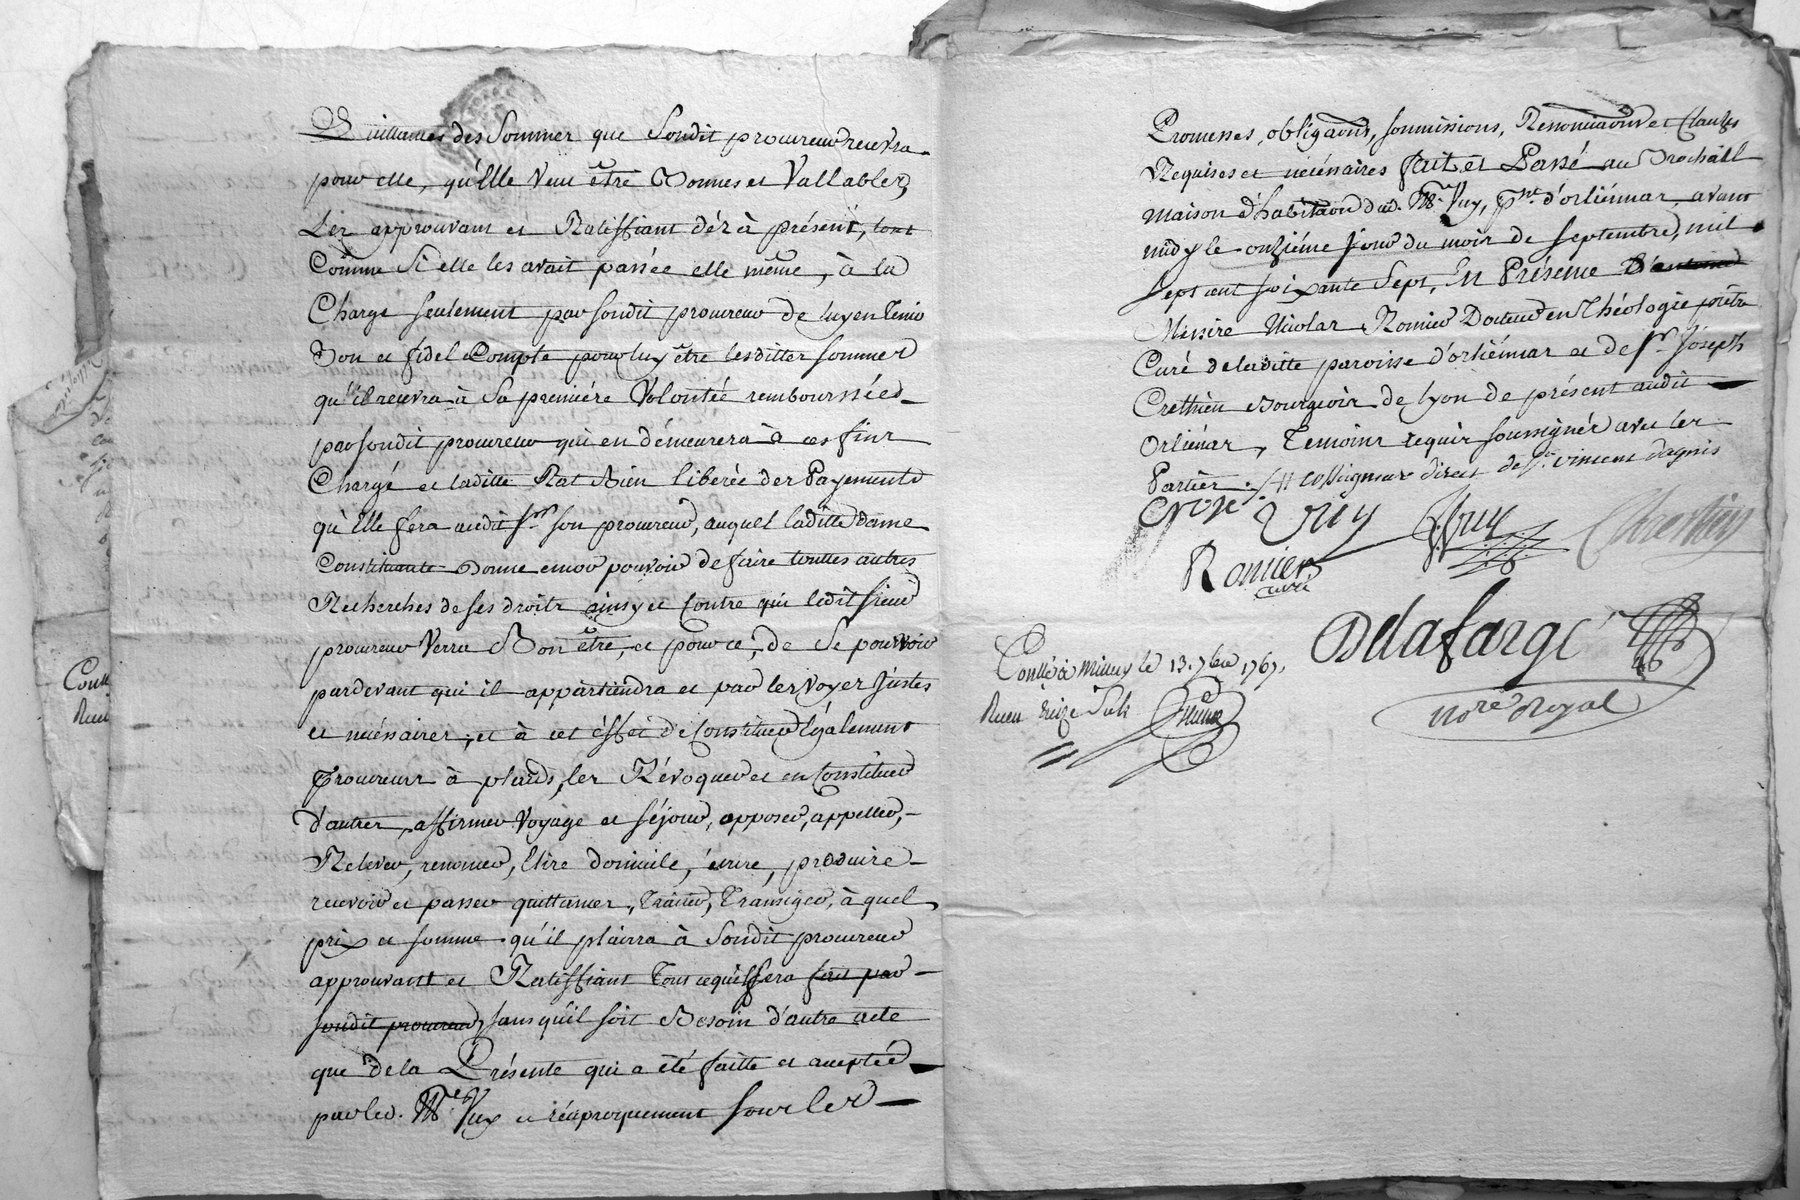 Quittances des Sommes que Sondit procureur recevra
pour elle, qu'Elle veut être Bonnes et Vallables,
Les approuvant et Ratiffiant déz à présent, tout
Comme Si elle les avait passée elle même, à la
Charge seulement par sondit procureur de luy en tenir
Bon et fidel Compte pour luy être lesdittes sommes
qu'il recevra à Sa première Volonté remboursées
par sondit procureur qui en démeurera à ces fins
Chargé et laditte Rat Bien libérée des Payements
qu'Elle fera audit Sr. son procureur, auquel laditte dame
Constituante Donne encor pouvoir de faire touttes autres
Recherches de ses droits ainsy et Contre qui ledit sieur
procureur Verra Bon être, et pour ce, de Se pourvoir
pardevant qui il appartiendra et par les voyes justes
et nécésaires, et à cet éffet de Constituer également
Procureurs à plaids, les Révoquer et en Constituer
d'autres, affirmer voyage et séjour, opposer, appeller,
Relever, renoncer, élire domicile, écrire, produire
recevoir et passer quittances, Traiter, Transiger, à quel
prix et somme qu'il plaira à Sondit procureur
approuvant et Ratiffiant Tout ce qu'il fera fait par
sondit procureur, sans qu'il soit Besoin d'autre acte
que de la Présente qui a été faitte et acceptée
par led. Me. Vuy et réciproquement sous les
Promesses, obligaons, soumissions, Renonciaons et Clauses
Requises et nécésaires fait et Passé au
maison d'habitaon dud. Me. Vuy, pnt. d'orliénnas, avant
midy le onziéme jour du mois de Septembre, mil
sept cent soixante Sept, En Présence
Messire Nicolas Romier Docteur en Théologie prêtre
Curé de laditte paroisse d'orliénnas et de Sr. Joseph
Crethien Bourgeois de lyon de présent audit
Orliénas, Temoins requis soussignés avec les
Parties. de St. vincent d'agnis
Vuy
Chretien
Romier
curé
Delafarge
Nore Royal
Conllé à Millery le 13. 7bre 1767.
Reçu treize Sols